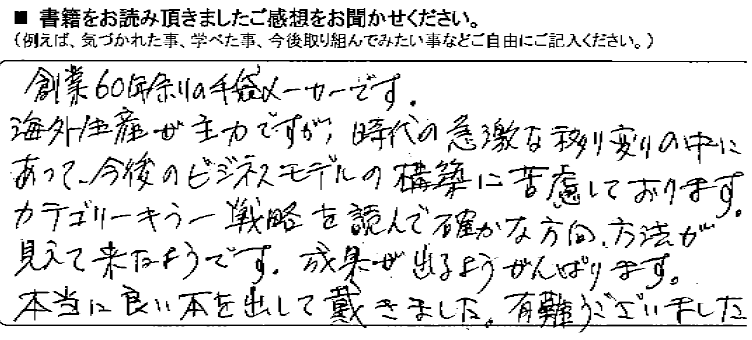 ■ 書籍をお読み頂きましたご感想をお聞かせください。
(例えば、気づかれた事、学べた事、今後取り組んでみたい事などご自由にご記入ください。)
創業60年余りの手袋メーカーです。
海外生産が主力ですが、時代の急激な移り変りの中に
あって、今後のビジネスモデルの構築に苦慮しております。
カテゴリーキラー戦略を読んで確かな方向、方法が
見えて来たようです。成果が出るようがんばります。
本当に良い本を出して戴きました。有難うございました